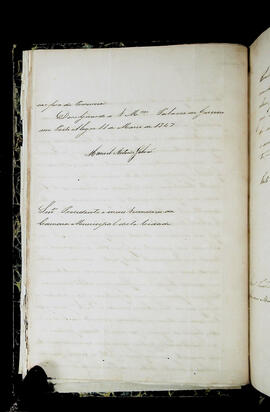 Deos Guarde a V. M.ces Palacio do Governo
em Porto Alegre 11 de Março de 1847
Manoel Antonio
Senr. Presidente e mais Vereadores da
Camara Municipal desta Cidade